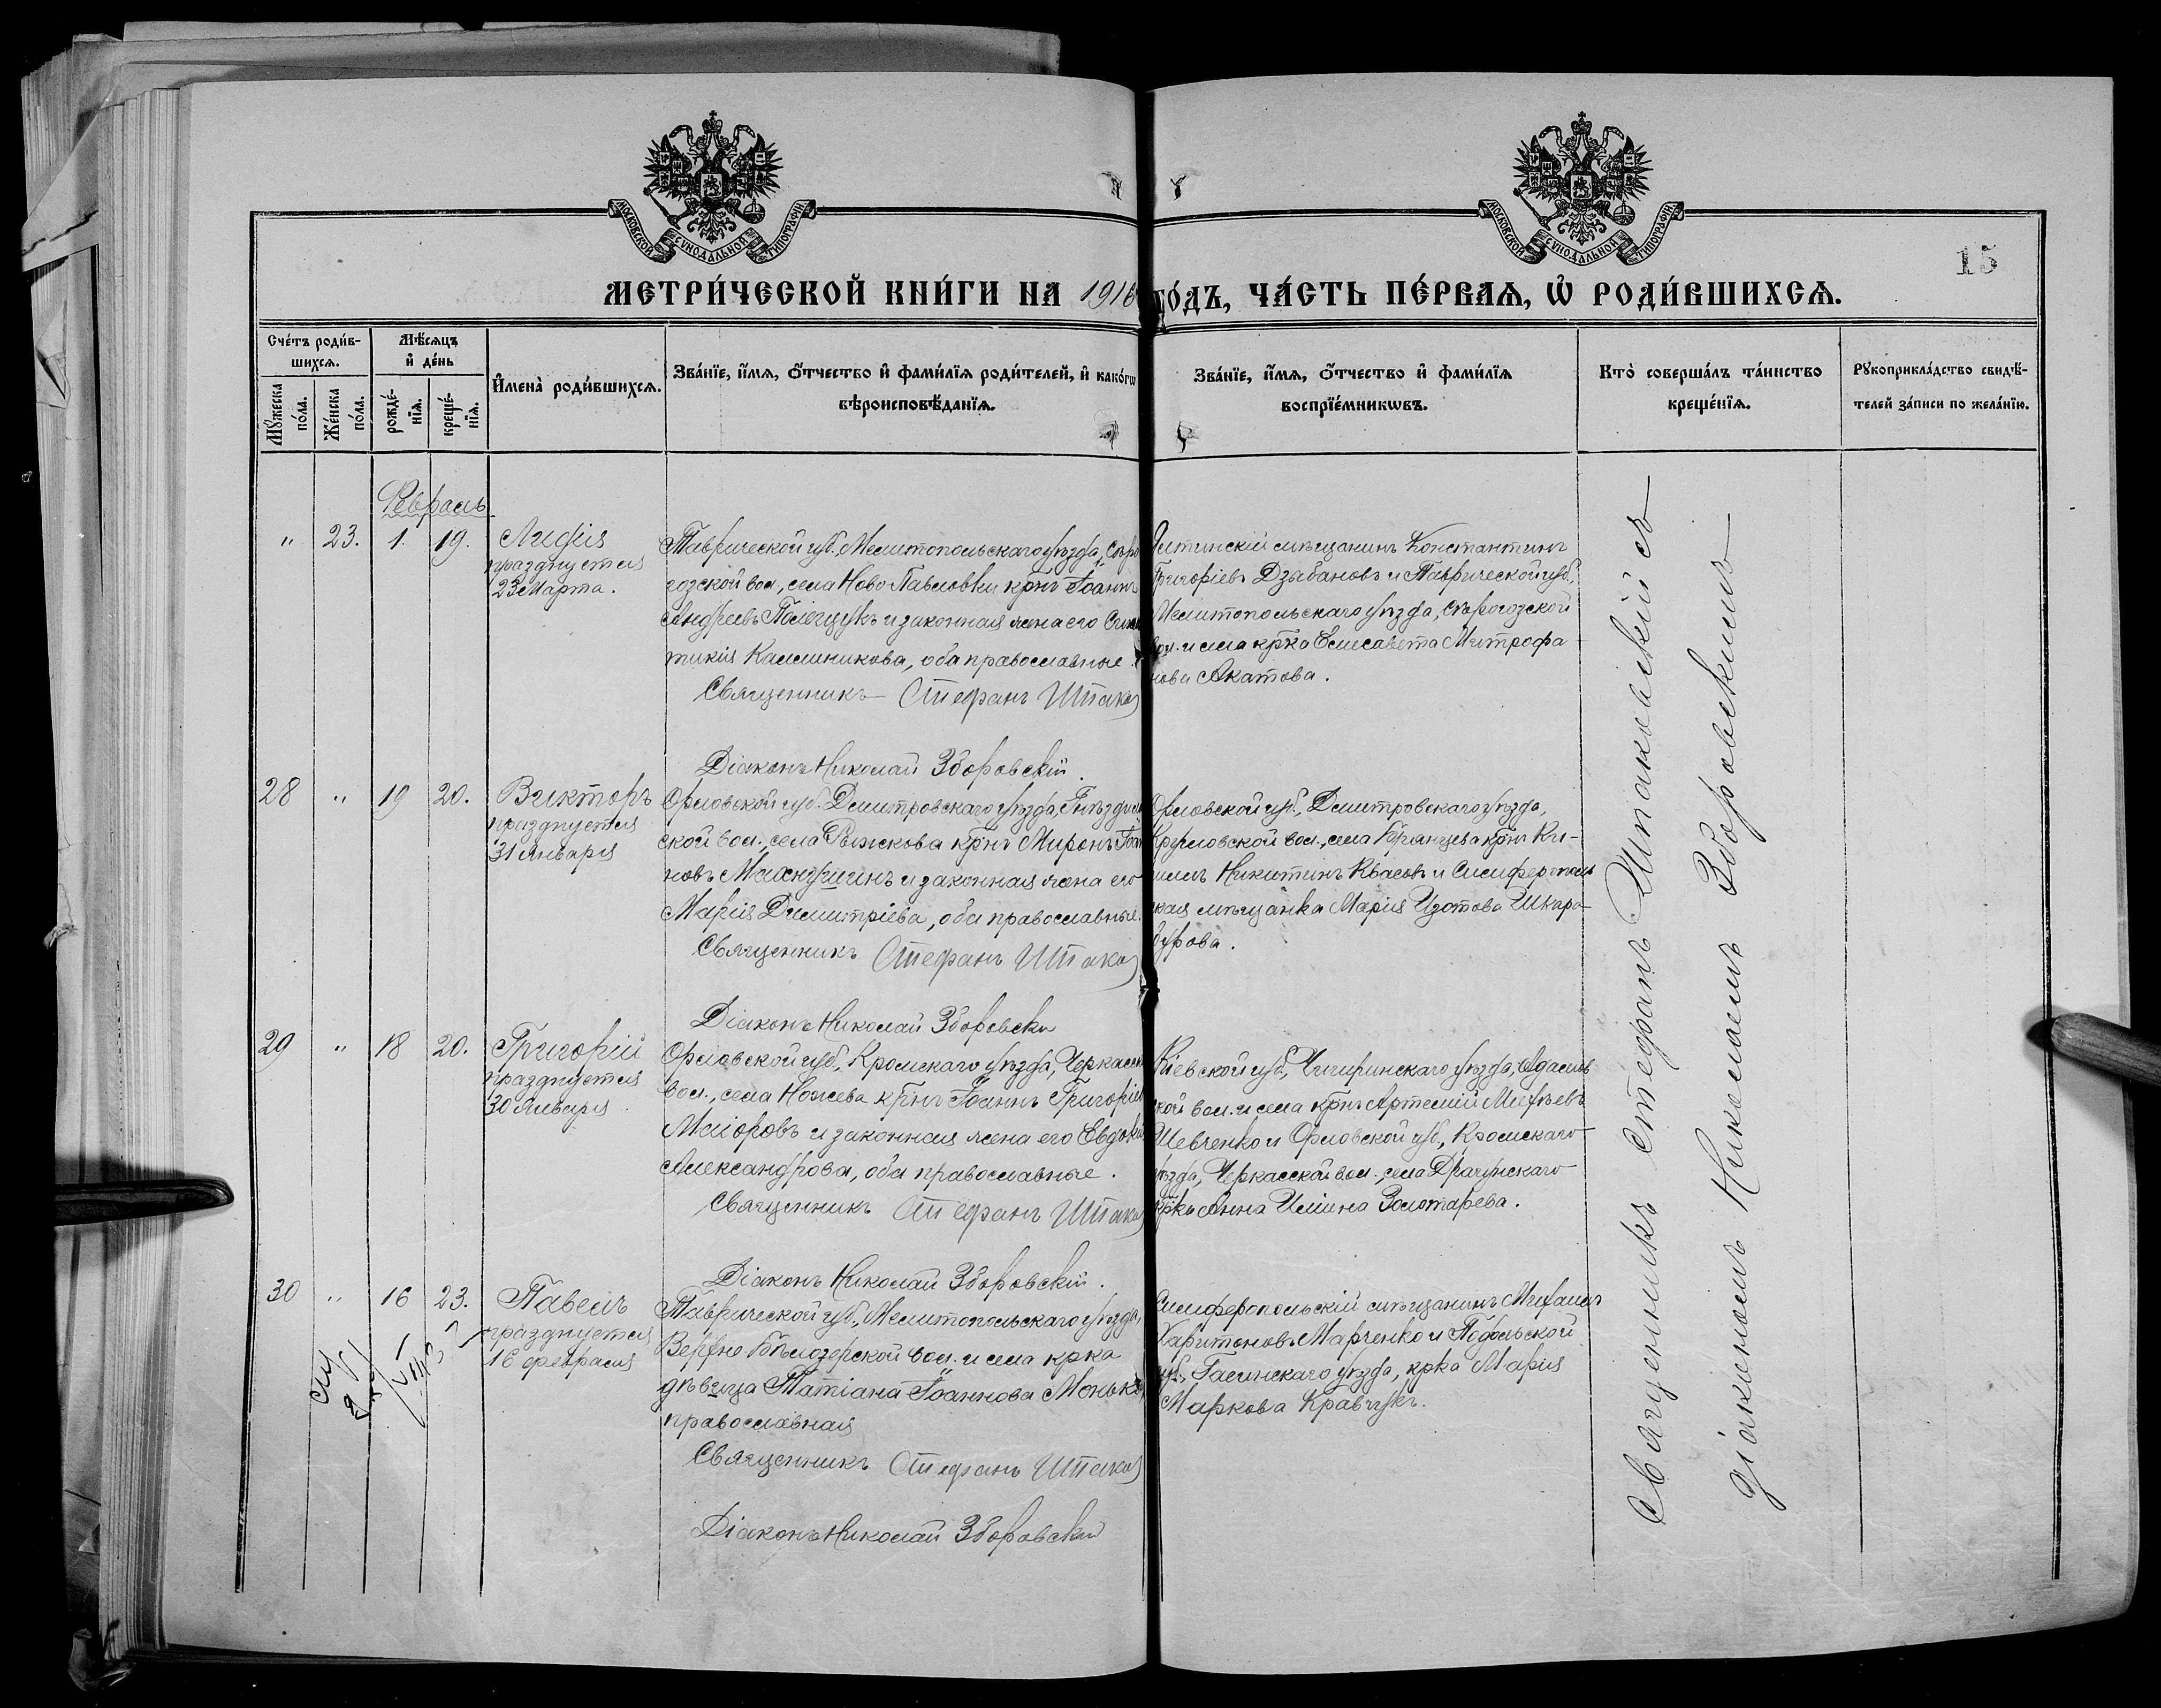 МОСКОВСКОЙ СУНОДАЛЬНОЙ ТИПОГРАФІИ
МОСКОВСКОЙ СУНОДАЛЬНОЙ ТИПОГРАФІИ
15
МЕТРИ́ЧЕСКОЙ КНИ́ГИ НА 1916 ГО́ДЪ, ЧА́СТЬ ПЕ́РВАѦ, Ѡ҆ РОДИ́ВШИХСѦ.
Сче́тъ роди́в-
шихсѧ.
Мꙋ́жеска по́ла.
Же́нска по́ла.
Мѣ́сѧцъ
и҆ де́нь
рожде́-
нїѧ.
креще́-
нїѧ.
И҆мена̀ роди́вшихсѧ.
Зва́нїе, и҆́мѧ, ѻ҆́тчество и҆ фами́лїѧ роди́телей, и҆ како́гѡ
вѣроисповѣ́данїѧ.
Зва́нїе, и҆́мѧ, ѻ҆́тчество и҆ фами́лїѧ
воспрїе́мникѡвъ.
Кто̀ соверша́лъ та́инство
креще́нїѧ.
Рꙋкоприкла́дство свидѣ́-
телей за́писи по жела́нїю.
Февраль
" 23. 1. 19. Лидія
празднуется
23 Марта.
Таврической губ., Мелитопольскаго уѣзда, Сѣро
гозской вол., села Ново Павловки крнъ Іоаннъ
Андреевъ Полещукъ и законная жена его Синк
тикія Калинникова, оба православные.
Священникъ Стефанъ Шпаков
Діаконъ Николай Зборовскій.
мѣщанинъ Константинъ
Григоріевъ Дзыбановъ и Таврической губ.,
Мелитопольскаго уѣзда, Сѣрогозской
вол. и села крка Елисавета Митрофа
нова Акатова.
28 " 19 20. Викторъ
празднуется
31 Января
Орловской губ. Дмитровскаго уѣзда, Гнѣздилов
ской вол., села Рыжкова крнъ Миронъ Іоан
новъ и законная жена его
Марія Димитріева, оба православные.
Священникъ Стефанъ Шпаков
Діаконъ Николай Зборовскі
Орловской губ., Дмитровскаго уѣзда,
Кругловской вол., села Брянцева крнъ Ки-
риллъ Никитинъ Квасовъ и Симферополь
ская мѣщанка Марія Изотова Шкара
бурова.
29 " 18 20. Григорій
празднуется
30 Января
Орловской губ., Кромскаго уѣзда, Черкасск
вол., села Ножева крнъ Іоаннъ Григоріев
Маіоровъ и законная жена его Евдокія
Александрова, оба православные.
Священникъ Стефанъ Шпаков
Діаконъ Николай Зборовскій.
Кіевской губ., Чигиринскаго уѣзда, Адамов
ской вол. и села крнъ Артемій Матѳѣевъ
Шевченко и Орловской губ., Кромскаго
уѣзда, Черкасской вол., села Драчунскаго
крка Анна Ильина Золотарева.
30 " 16 23. Павелъ
празднуется
16 февраля
Таврической губ., Мелитопольскаго уѣзда,
Верхне Бѣлозерской вол. и села крка
дѣвица Татіана Іоаннова Монько,
православная
Священникъ Стефанъ Шпаков
Діаконъ Николай Зборовскій
Симферопольскій мѣщанинъ Михаилъ
Харитоновъ Марченко и Подольской
губ., Гайсинскаго уѣзда, крка Марія
Маркова Кравчукъ.
Священникъ Стефанъ Шпаковскій съ
діакономъ Николаемъ Зборовскимъ